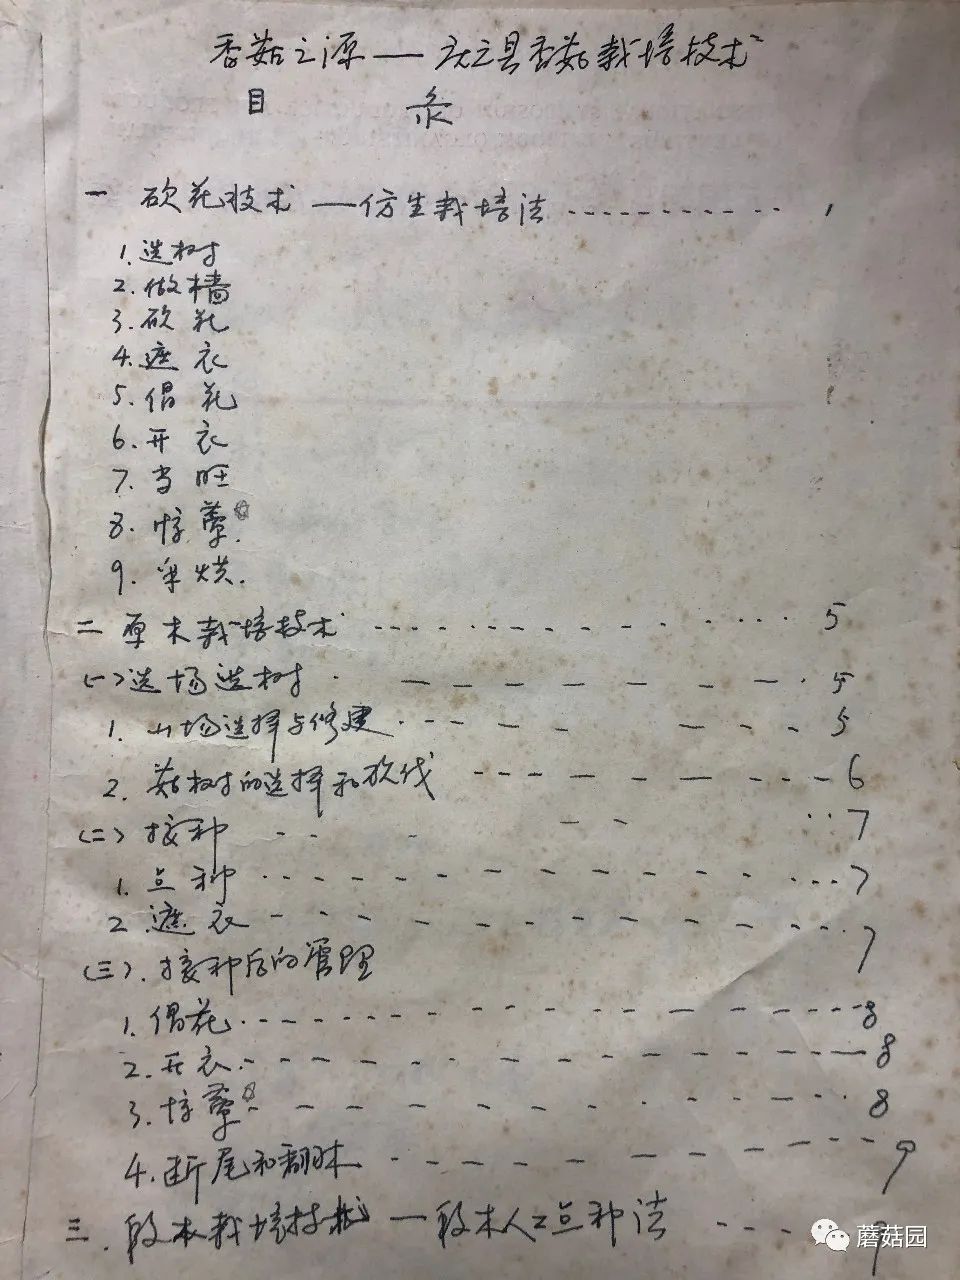 香菇之源——庆元县香菇栽培技术
目 录
一 砍花技术——仿生栽培法 ............ 1
1.选树
2.做樯
3.砍花
4.遮衣
5.倡花
6.开衣
7.当旺
8.惊蕈
9.采烘.
二 原木栽培技术 ............ 5
(一)选场选树 ............ 5
1.山场选择与修建 ............ 5
2.菇树的选择和砍伐 ............ 6
(二)接种 ............ 7
1.点种 ............ 7
2.遮衣 ............ 7
(三).接种后的管理
1.倡花 ............ 8
2.开衣 ............ 8
3.惊蕈 ............ 8
4.断尾和翻木 ............ 9
三.段木栽培技术——段木人工点种法 ............ 9
蘑菇园